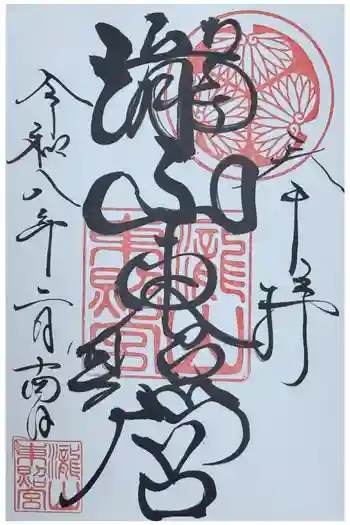 奉拝
瀧山東照宮
瀧山東照宮
令和八年二月
瀧山東照宮